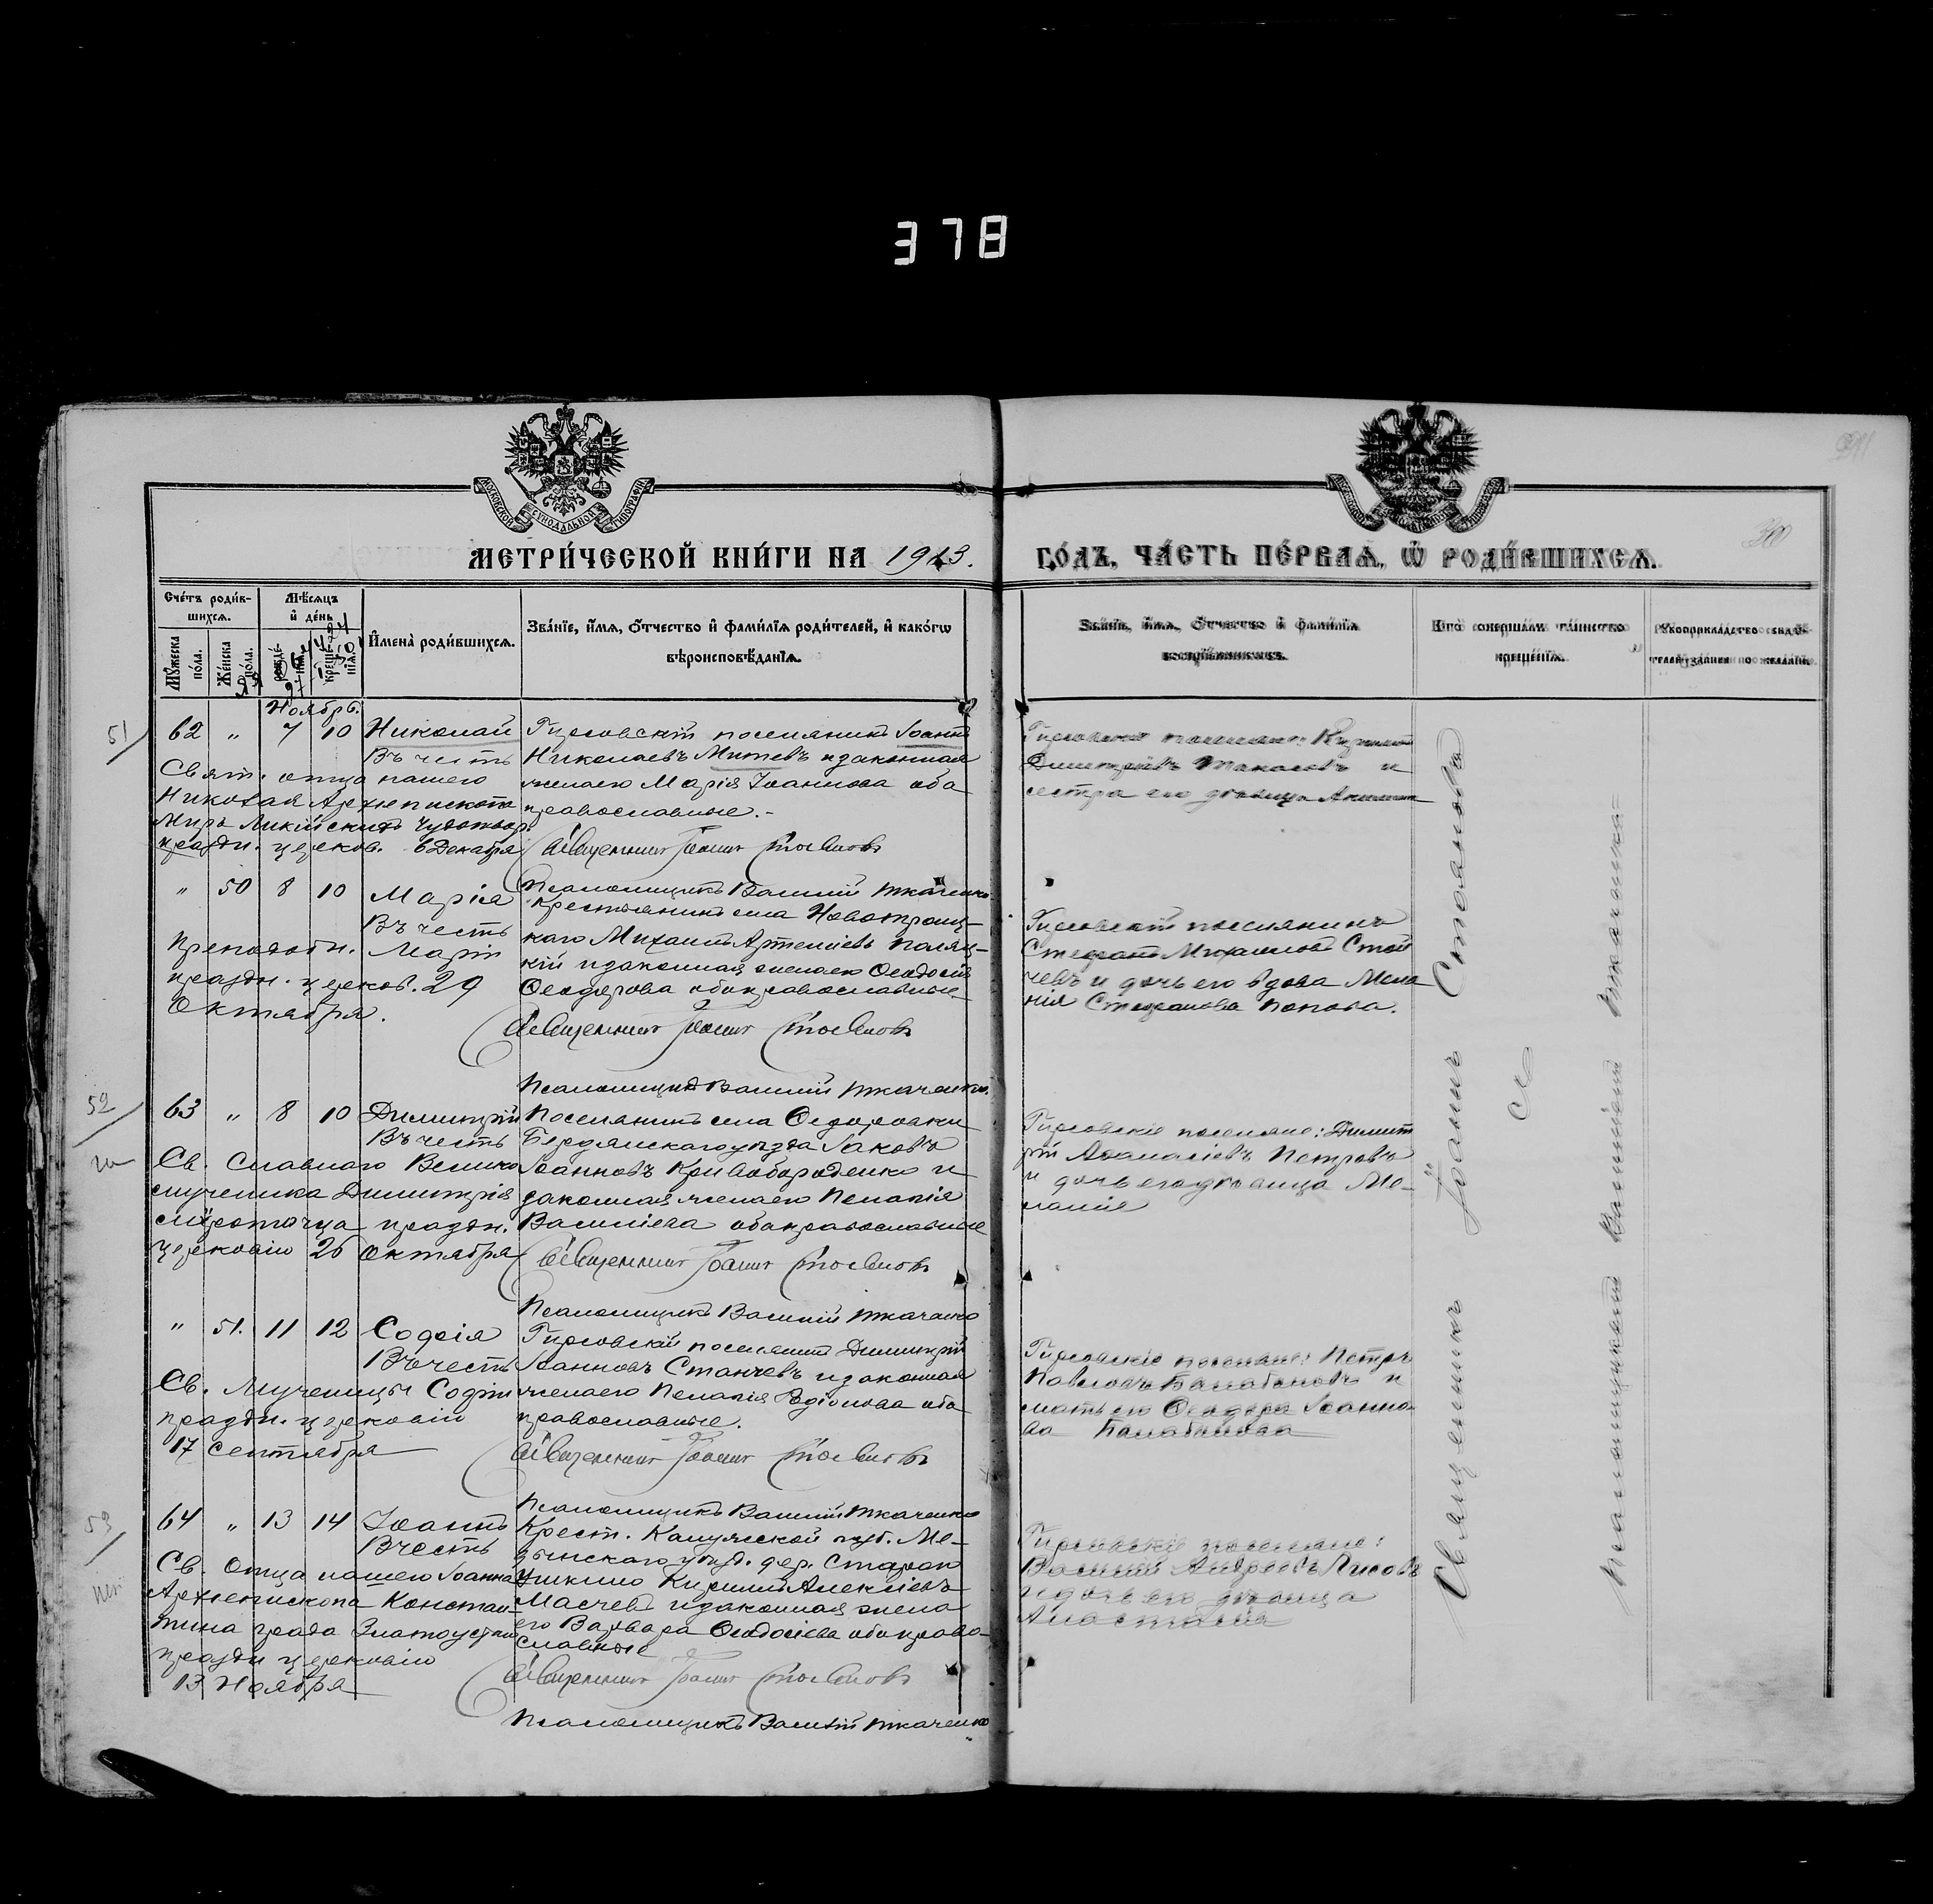 378
МОСКОВСКОЙ СѴНОДАЛЬНОЙ ТИПОГРАФІИ
МЕТРИ́ЧЕСКОЙ КНИ́ГИ НА 1913.
ГО́ДЪ, ЧА́СТЬ ПЕ́РВАѦ, Ѡ҆ РОДИ́ВШИХСѦ.
Сче́тъ роди́в-
шихсѧ.
Мꙋ́жеска по́ла.
Же́нска по́ла.
Мѣ́сѧцъ
и҆ де́нь
рожде́-нїѧ.
креще́-нїѧ.
И҆мена̀ роди́вшихсѧ.
Зва́нїе, и҆́мѧ, ѻ҆́тчество и҆ фами́лїѧ роди́телей, и҆ како́гѡ
вѣроисповѣ́данїѧ.
Зва́нїе, и҆́мѧ, ѻ҆́тчество и҆ фами́лїѧ
воспрїе́мникѡвъ.
Кто̀ соверша́лъ та́инство
креще́нїѧ.
Рꙋкоприкла́дство свидѣ́-
телей за́писи по жела́нїю.
Ноябрь.
51
62 „ 7 10 Николай
Въ честь
Свят. отца нашего
Николая Архіепископа
Мирь Ликійскихъ Чудотвор.
праздн. церков. 6 Декабря
Гирсовскій поселянинъ Іоаннъ
Николаевъ Митевъ и законная
жена его Марія Іоаннова оба
православные.
Священникъ Іоаннъ Стояновъ
Псаломщикъ Василій Ткаченко
Димитріевъ и
сестра его дѣвица
„ 50 8 10 Марія
Въ честь
Преподобн. Маріи
праздн. церков. 29
Октября.
Крестьянинъ села Новотроиц-
каго Михаилъ Артеміевъ Поляц-
кій и законная жена его Ѳеодосія
Ѳеодорова оба православные
Священникъ Іоаннъ Стояновъ
Псаломщикъ Василій Ткаченко.
Гирсовскій поселянинъ
Стефанъ Михаиловъ Стой
чевъ и дочь его вдова Мела
нія Стефанова Попова.
52
63 „ 8 10 Димитрій
Въ честь
Св. Славнаго Велико
мученика Димитрія
мѵроточца праздн.
церковію 26 Октября
Поселянинъ села Ѳедоровки
Бердянскаго уѣзда Іаковъ
Іоанновъ Кривобороденко и
законная жена его Пелагія
Василіева оба православные
Священникъ Іоаннъ Стояновъ
Псаломщикъ Василій Ткаченко
Гирсовскіе поселяне: Димит
рій Аѳанасіевъ Петровъ
и дочь его дѣвица Ме-
ланія
„ 51. 11 12 Софія
Въ честь
Св. Мученицы Софіи
праздн. церковію
17 сентября
Гирсовскій поселянинъ Димитрій
Іоанновъ Станчевъ и законная
жена его Пелагія Родіонова оба
православные.
Священникъ Іоаннъ Стояновъ
Псаломщикъ Василій Ткаченко
Гирсовскіе поселяне: Петръ
Павловъ Балабановъ и
мать его Ѳеодора Іоанно-
ва Балабанова
53
64 „ 13 14 Іоаннъ
Вчесть
Св. Отца нашего Іоанна
Архіепископа Констан-
тина града Златоустаго
праздн церковію
13 Ноября
Крест. Калужской губ. Ме-
дынскаго уѣзд. дер.
Кириллъ Алексіевъ
и законная жена
его Варвара Ѳеодосіева оба право-
славные
Священникъ Іоаннъ Стояновъ
Псаломщикъ Василій Ткаченко
Гирсовскіе поселяне:
Василій Андреевъ
и дочь его дѣвица
Анастасія
Священникъ Іоаннъ Стояновъ
Съ
Псаломщикомъ Василіемъ Ткаченко